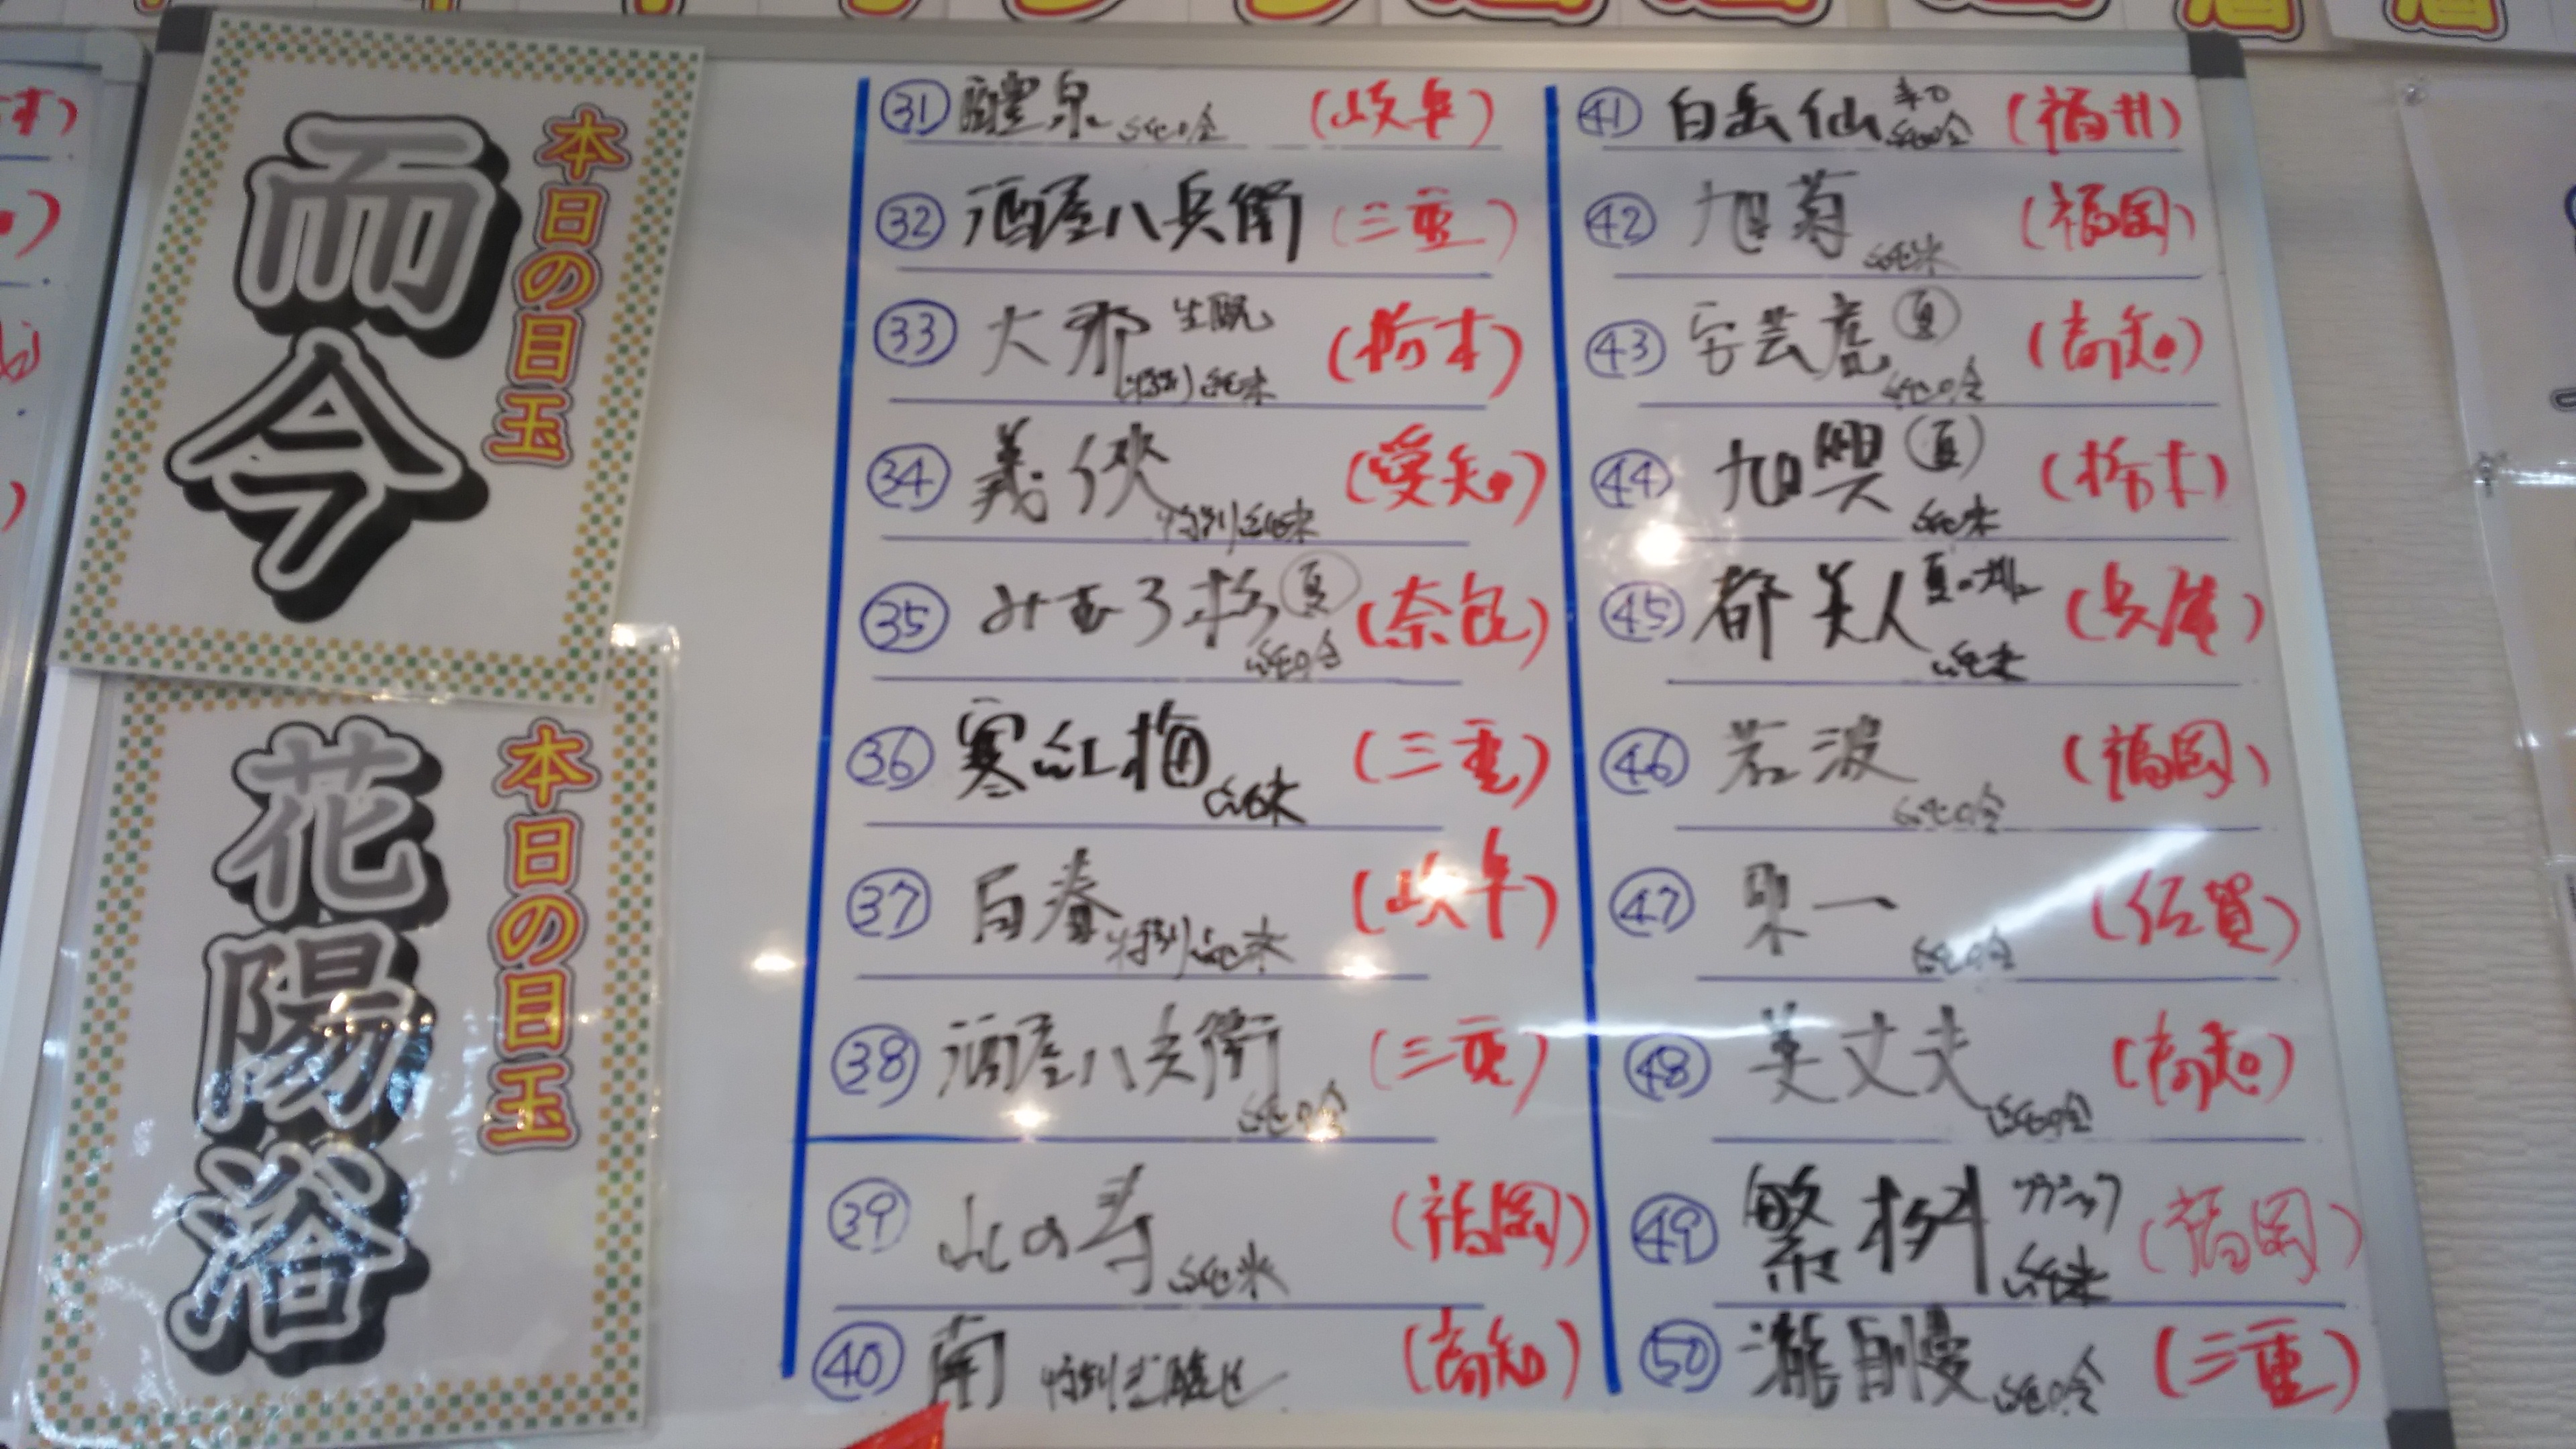 本日の目玉
而今
本日の目玉
花陽浴
㉛ 醴泉 純吟 (岐阜)
㉜ 酒屋八兵衛 (三重)
㉝ 大那 生酛 特別純米 (栃木)
㉞ 義侠 特別純米 (愛知)
㉟ みむろ杉 夏 純吟 (奈良)
㊱ 寒紅梅 純米 (三重)
㊲ 百春 特別純米 (岐阜)
㊳ 酒屋八兵衛 純吟 (三重)
㊴ 山の寿 純米 (福岡)
㊵ 南 特別本醸造 (高知)
㊶ 白岳仙 純吟 (福井)
㊷ 旭菊 純米 (福岡)
㊸ 安芸虎 夏 純吟 (高知)
㊹ 旭興 夏 純米 (栃木)
㊺ 都美人 夏の 純米 (兵庫)
㊻ 若波 純吟 (福岡)
㊼ 聚一 純吟 (佐賀)
㊽ 美丈夫 純吟 (高知)
㊾ 繁桝 純米 (福岡)
㊿ 瀧自慢 純吟 (三重)